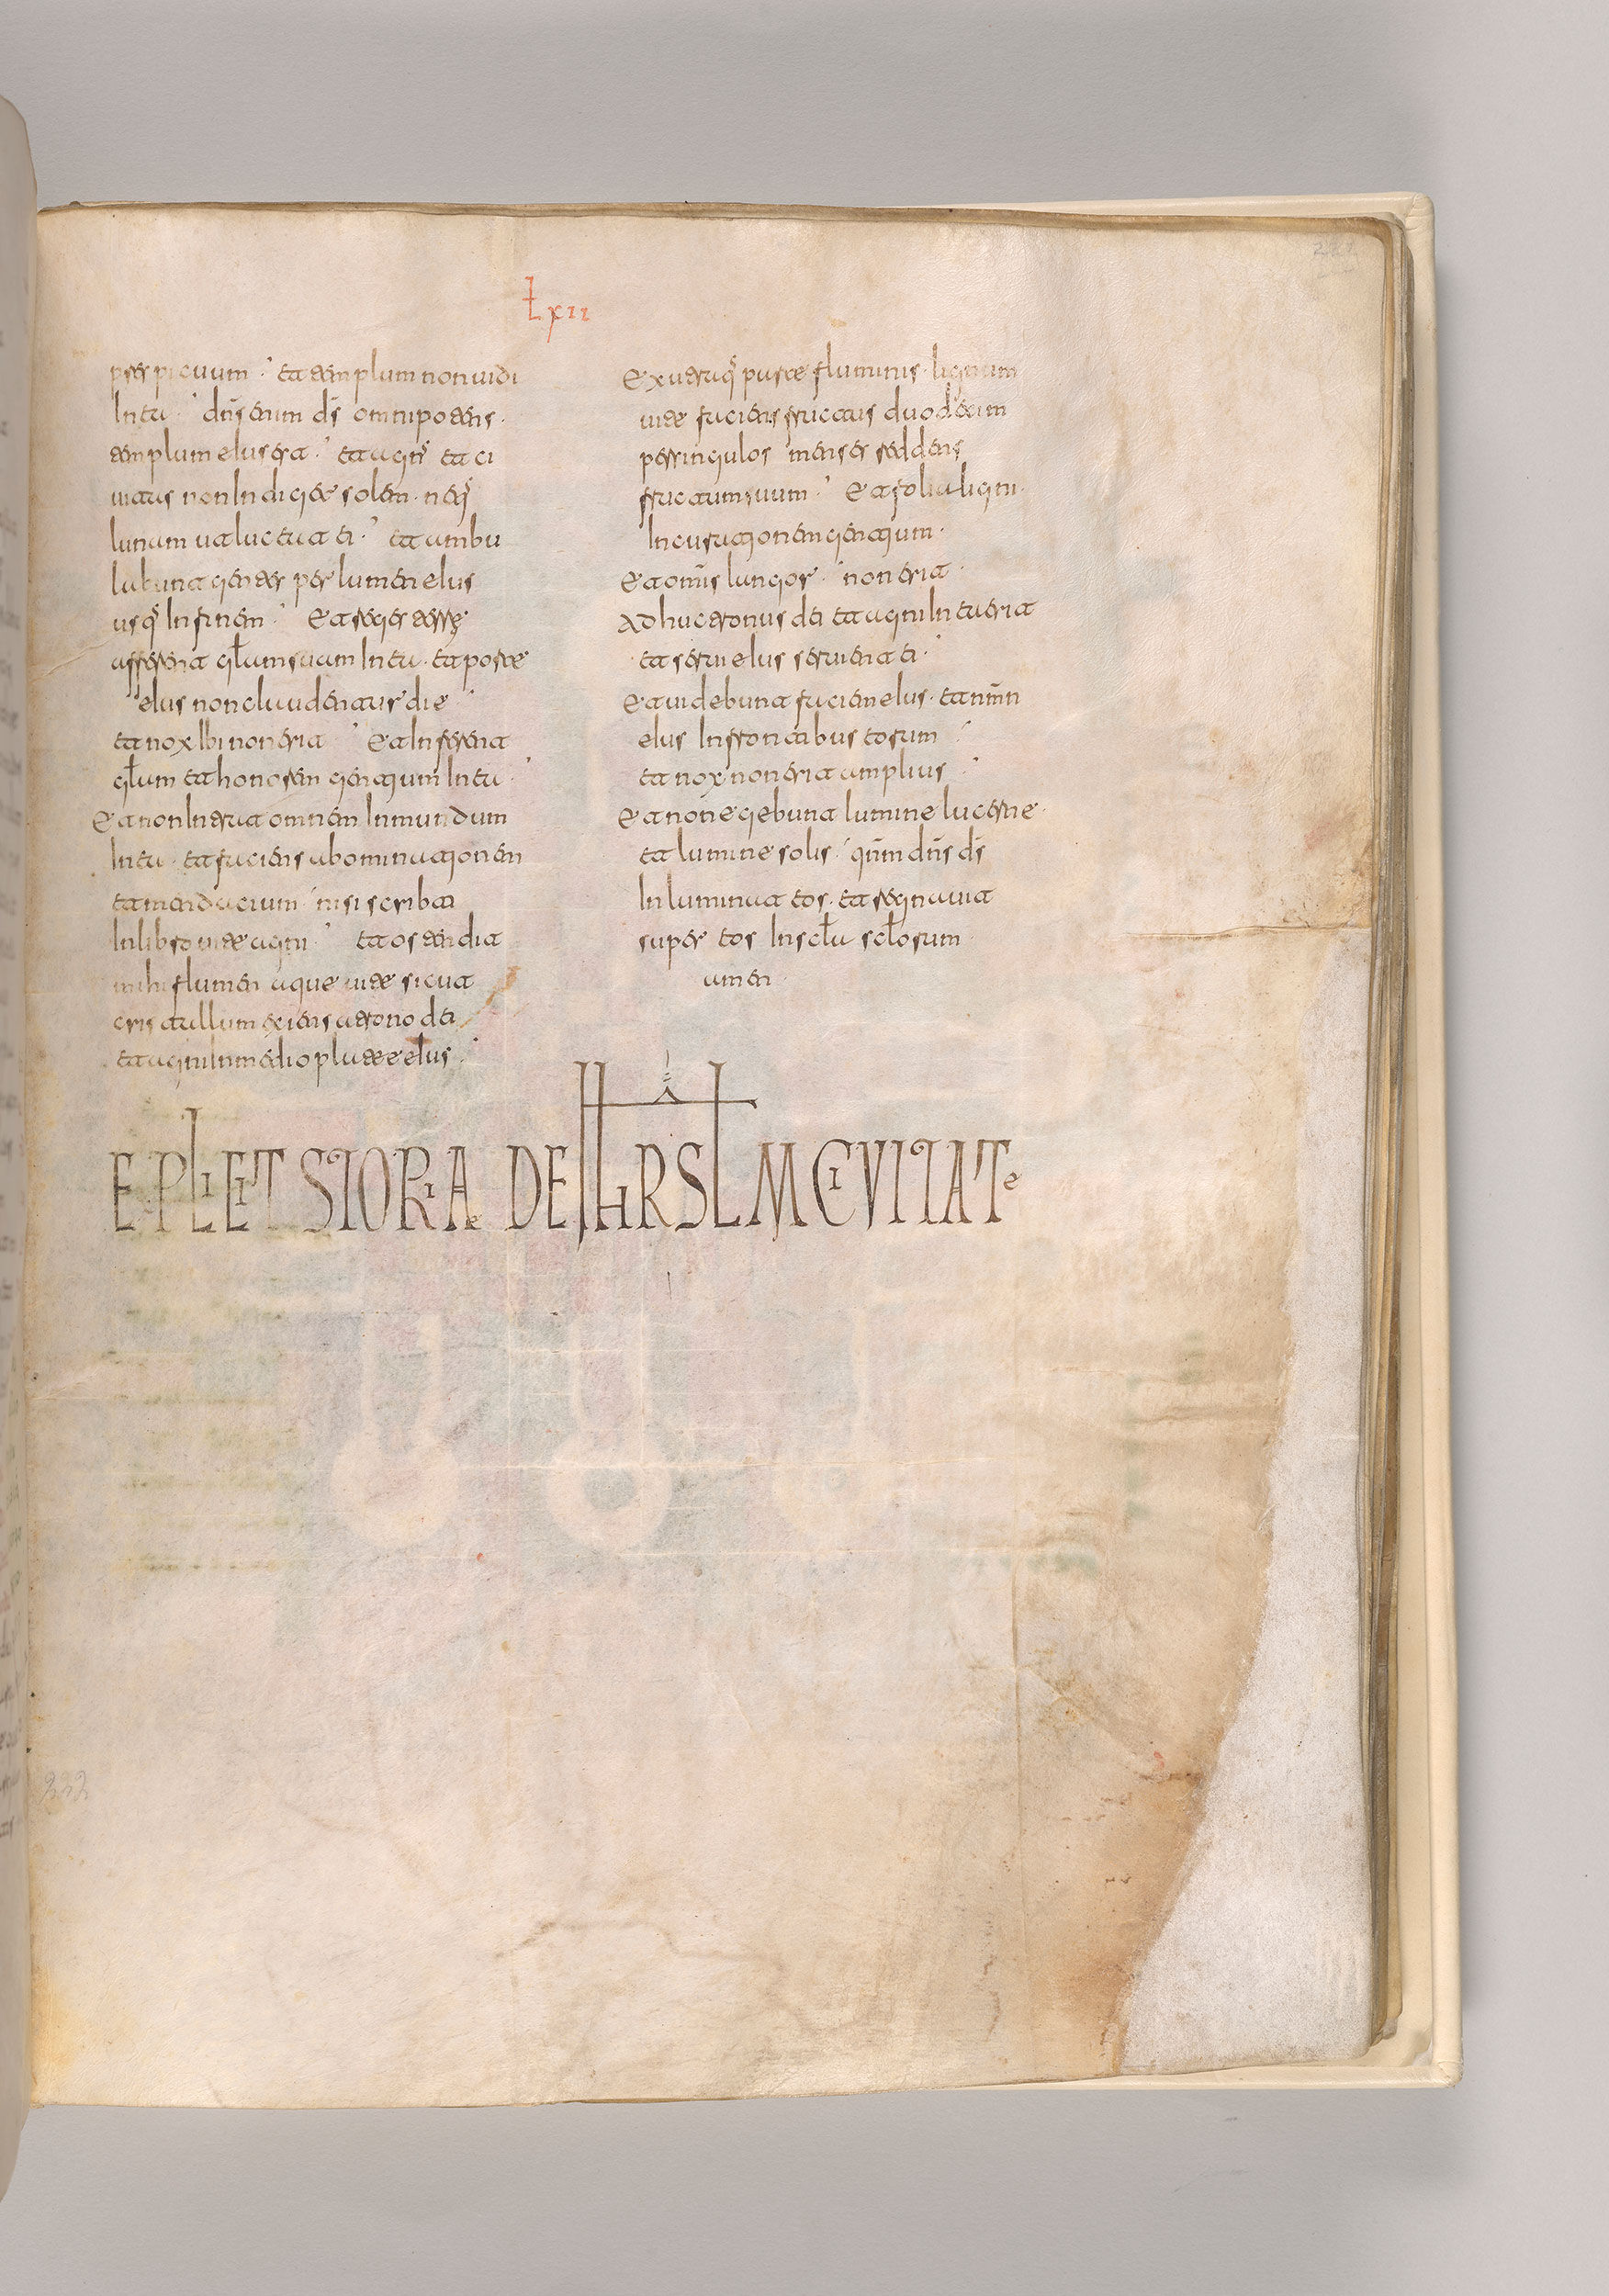 Lxii
perspicuum · et templum non uidi
In ea · dn̄s enim dS̄ omnipotens ·
templum eius est · et agnS̄ et ci
uitas non Indiget solem · neq̄
lunam ut luceat ei · et ambu
labunt gentes per lumen eius
usq̄ In finem · Et reges terrę
afferent głam suam In ea · et porte
eius non claudentur die
et nox Ibi non erit · Et Inferent
głam et honorem gentium In ea ·
Et non Intret omnem Inmundum
In ea · et faciens abominationem
et mendacium nisi scribti
In libro uite agni · et ostendit
mihi flumen aque uite sicut
cristallum exiens a trono dei
et agni In medio platee eius ·
Ex utraq̄ parte fluminis · lignum
uite faciens fructus duodecim
per singulos menses reddens
fructum suum · Et folia ligni ·
In curationem gentium ·
Et omīs langor · non erit ·
Adhuc tronus dei et agni In ea erit
et serui eius seruient ei ·
Et uidebunt faciem eius · et nm̄n
eius In frontibus eorum
et nox non erit amplius
Et non egebunt lumine lucerne ·
et lumine solis · qn̄m dn̄s dS̄
Inluminat eos · et regnauit
super eos In scła scłorum
amen ·
EXPLICIT STORIA DE IHRSLM CIVITATE
222